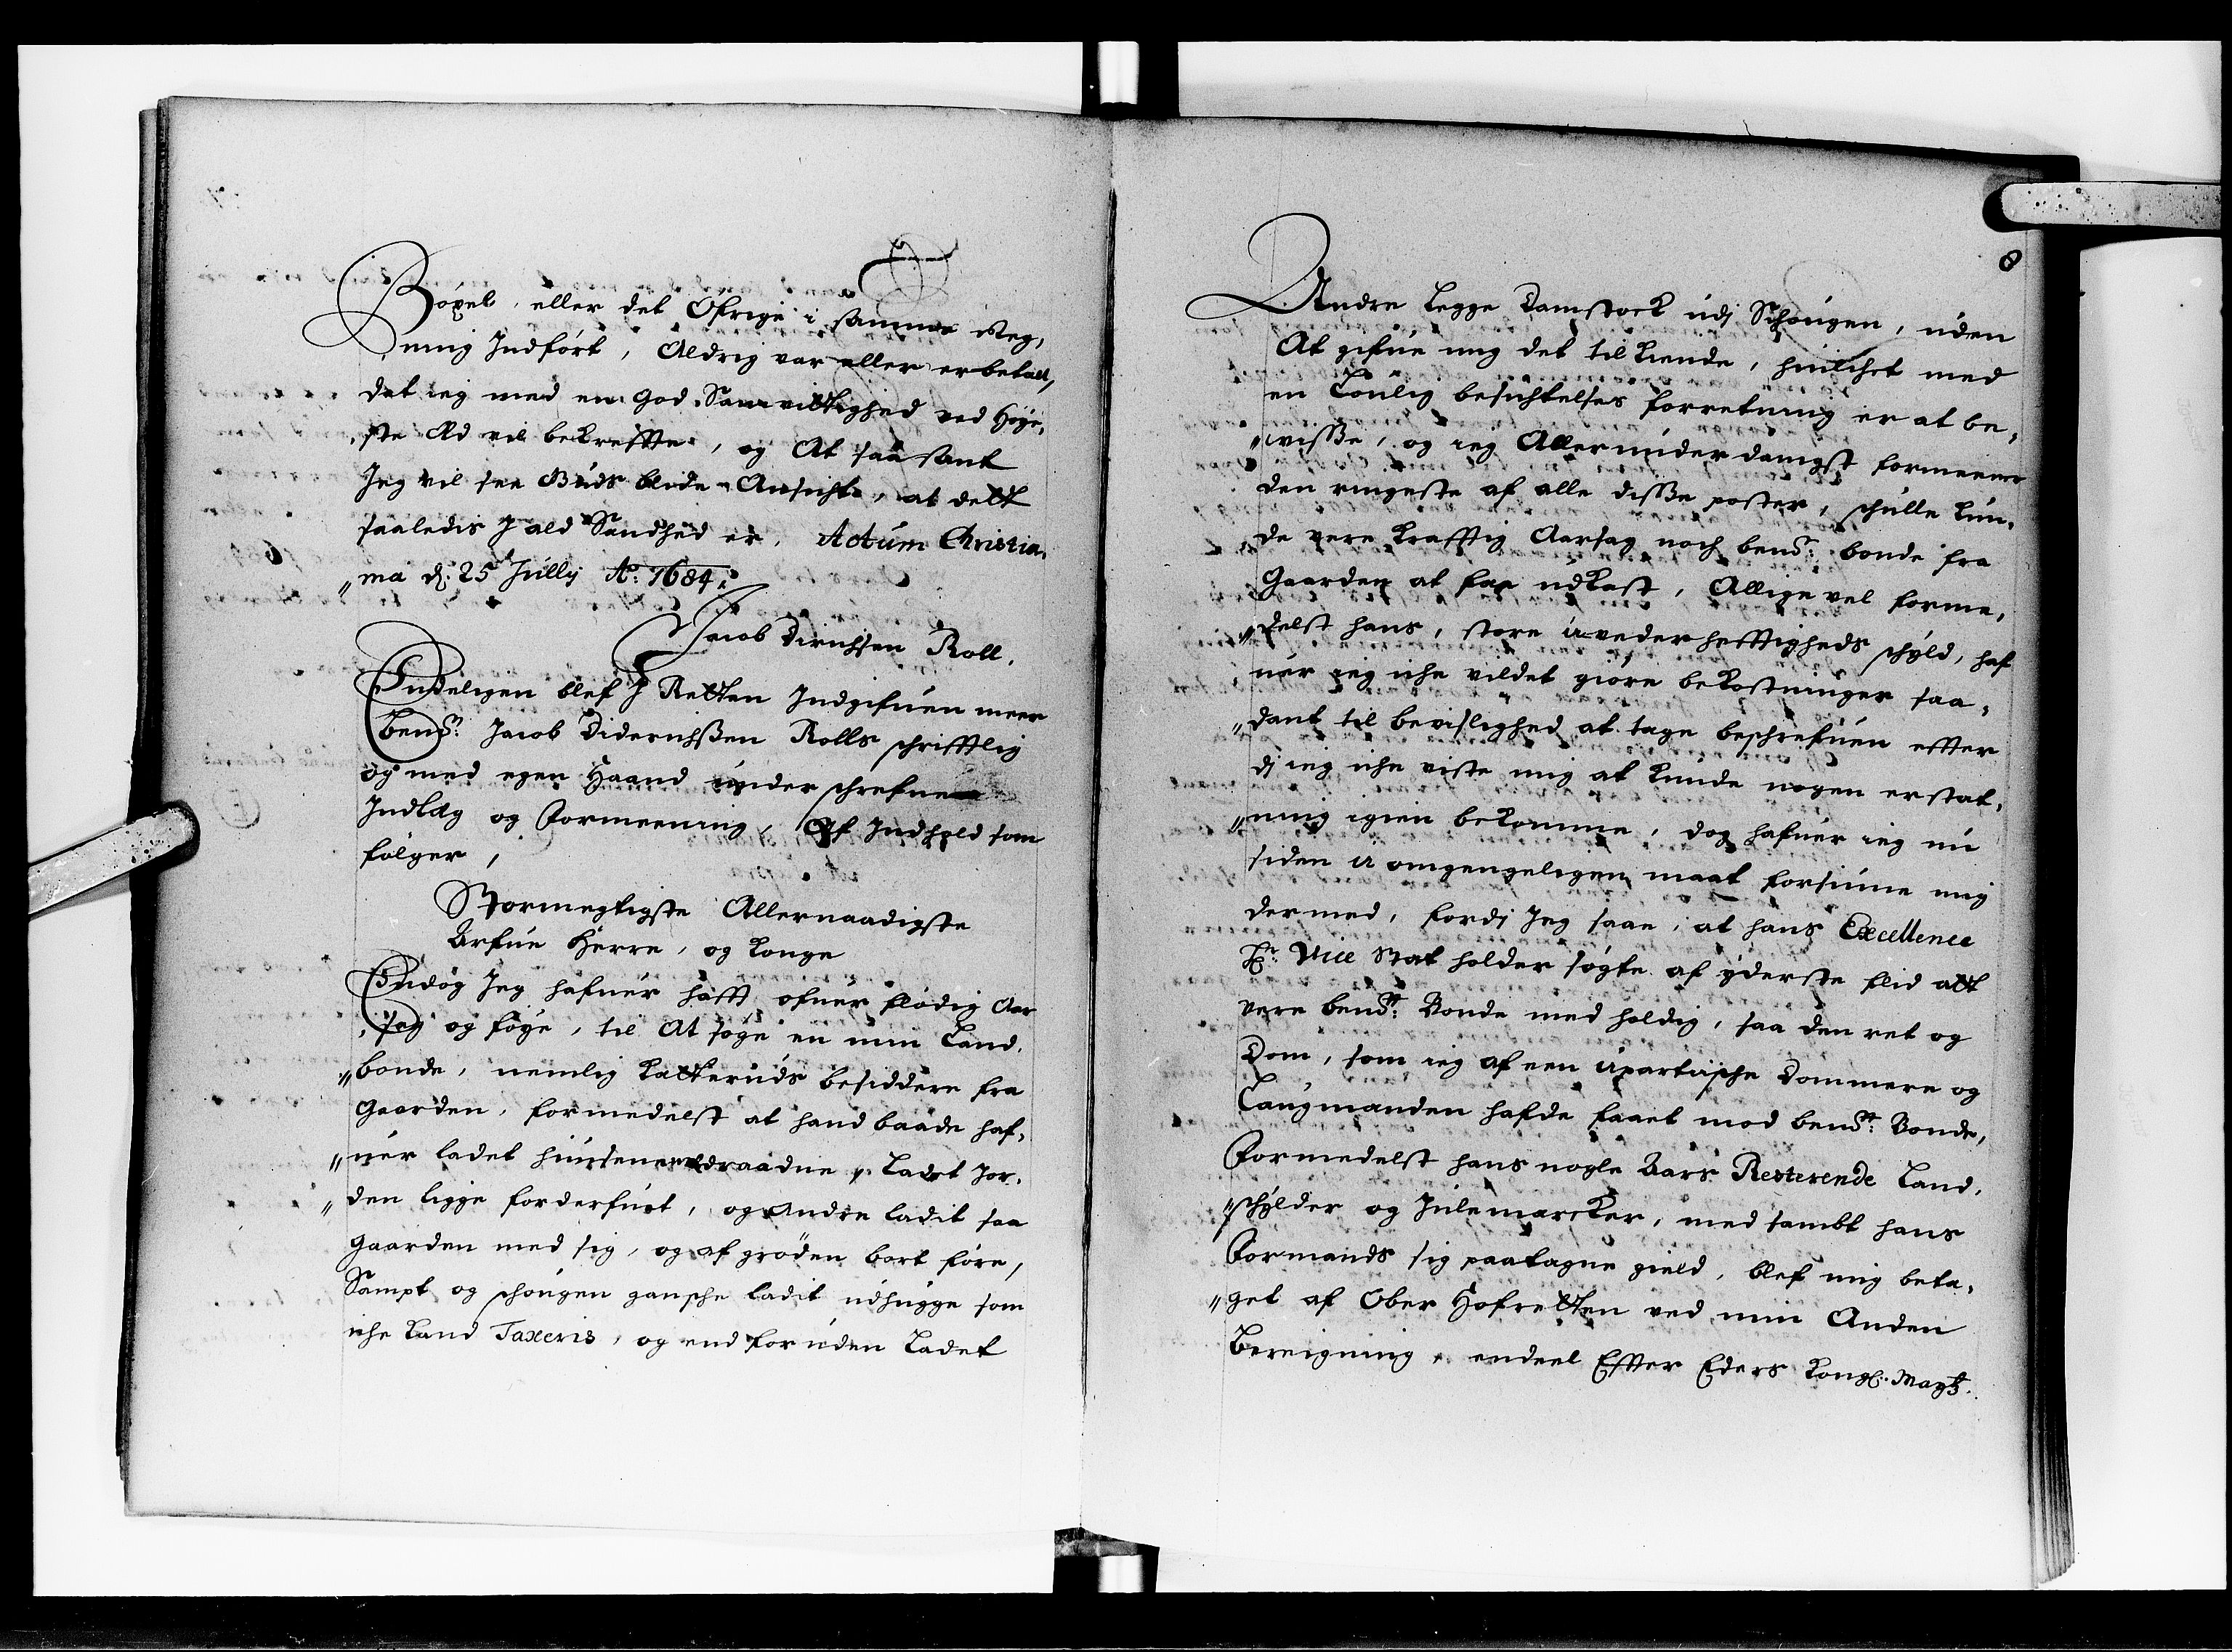 Böxel, eller det Öfrige i samme Reg,
ning Indført, Aldrig var eller er betalt,
dat ieg med en god Samvittighed ved Høye,
ste Æd vil bekreffte, og At saa sant
Jeg vil see Guds blide Ansicht, at dett
saaledis J ald Sandhed er, Actum Christia,
„nia d: 25 Jullij Ao: 1684:
Jacob Dirichsen Roll,
Endeligen blef J Retten Indgifuen meer
bend: Jacob Diderichsßen Rolls schrifftlig
og med egen Haand under schrefne
Indlæg og Formeening, Af Indhold som
følger,
Stormegtigste Allernaadigste
Arfue Herre, og Konge
Endog Jeg hafuer hafft ofuer flødig Aar
„sag og føye, til At søge en min Land,
„bonde, nemlig Katteruds besiddere fra
Gaarden, formedelst at hand baade haf,
„uer ladet husene nedraadne, Ladet Jor,
„den ligge forderfuet, og Andre ladit saa
gaarden med sig, og af grøden bort føre,
Sampt og schougen gansche ladit udhugge som
iche kand Taxeris, og end foruden Ladet
8
Andre Legge Damstock udj Schougen, uden
At gifue mig det til kiende, huilchet med
en Loulig besichtelses forretning er at be,
„wisße, og ieg Allerunderdanigst formeener
den ringeste af alle disße poster, schulle kun,
„de vere krafftig Aarsag noch bend: bonde fra
Gaarden at faa udkast, Alligevel forme,
„delst hans, store uvederhefftigheds schyld, haf
„uer ieg iche vildet giøre bekostninger saa,
„dant til bevislighed at tage beschrefuen effter
dj ieg iche viste mig at kunde nogen erstat,
„ning igien bekomme, dog hafuer ieg nu
siden uomgengeligen maat forsiune mig
dermed, fordj Jeg saae, at hans Excellence
Hr: Vice Stat holder søgte af yderste flid att
vere bend: Bonde med holdig, saa den ret og
Dom, som ieg af een upartiische Dommere og
Laugmanden hafde faaet mod bend: Bonde,
Formedelst hans nogle Aars Resterende Land,
„schylder og Julemarcker, med sambt hans
Formands sig paatagne gield, blef mig beta,
„get af Ober Hofretten ved min Anden
Bereigning, endeel Effter Eders Kongl: Maytz: